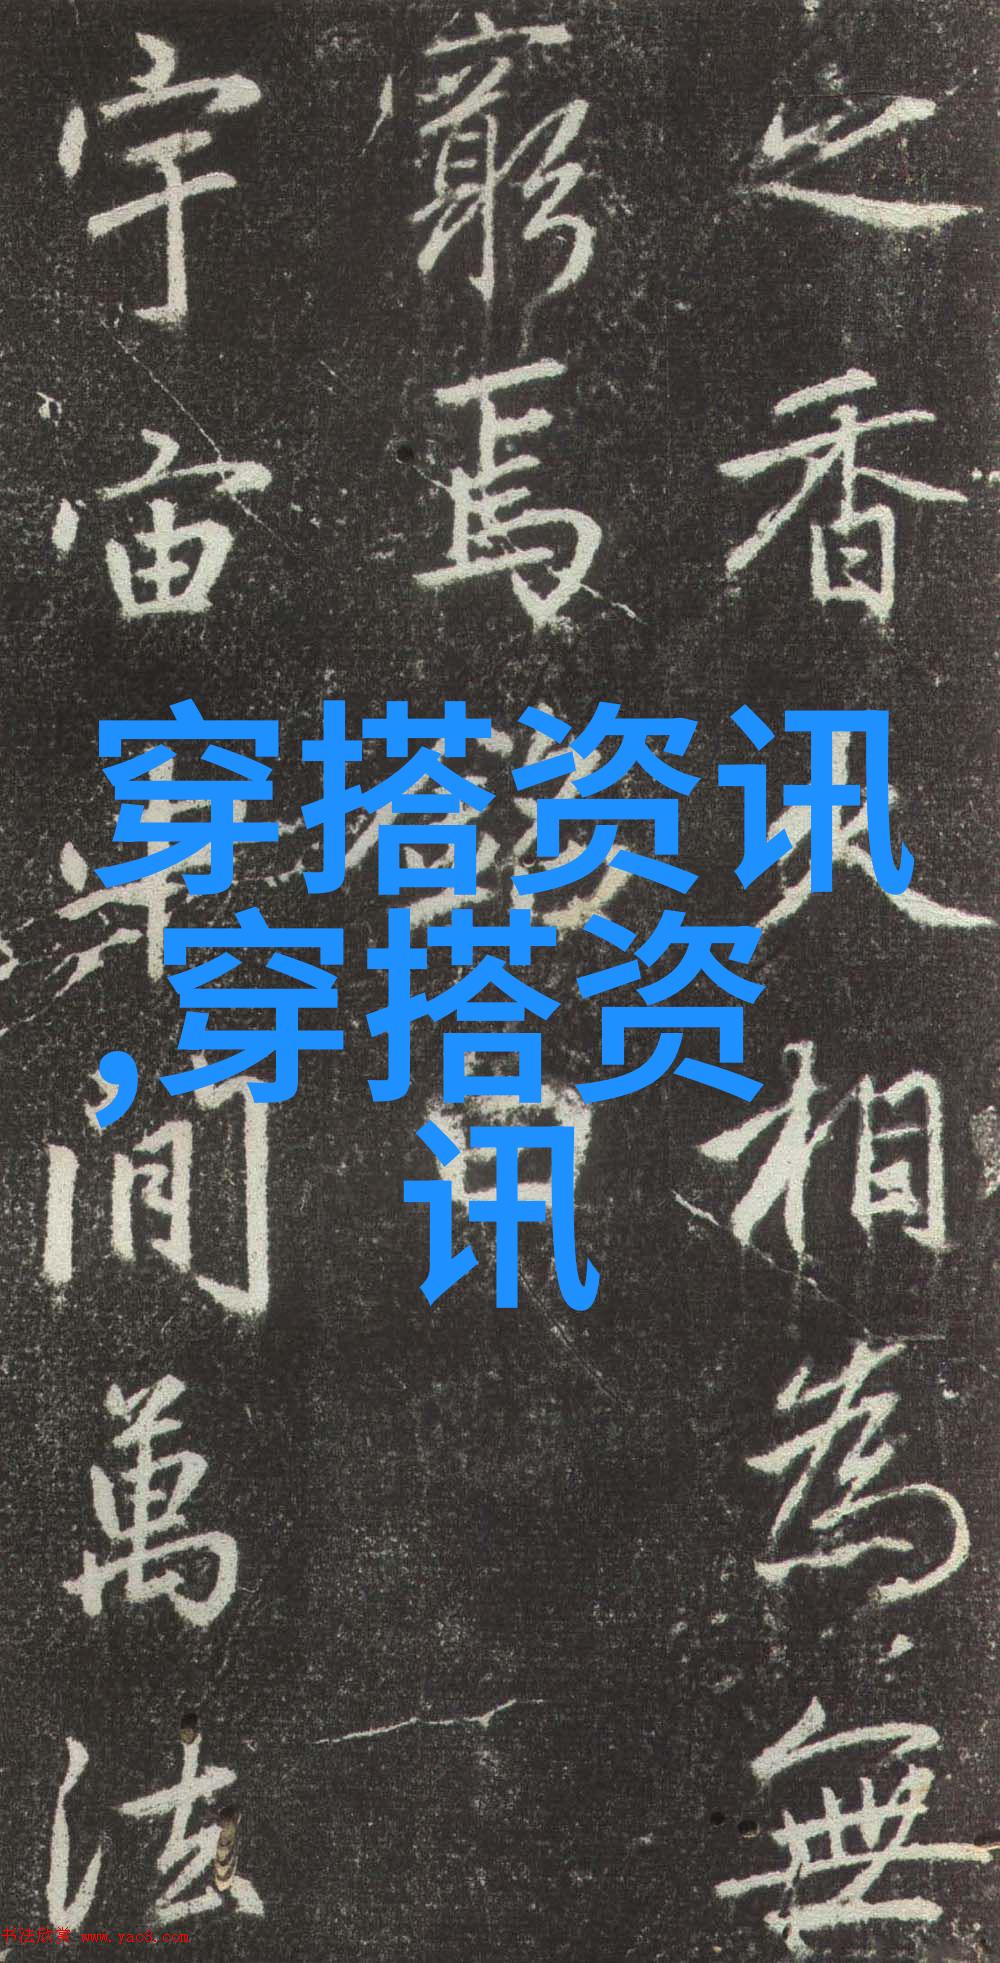 之香火相為無
窮焉
宇宙之間萬法
穿搭资讯
,穿搭资
讯
书法欣赏 www.yac8.com